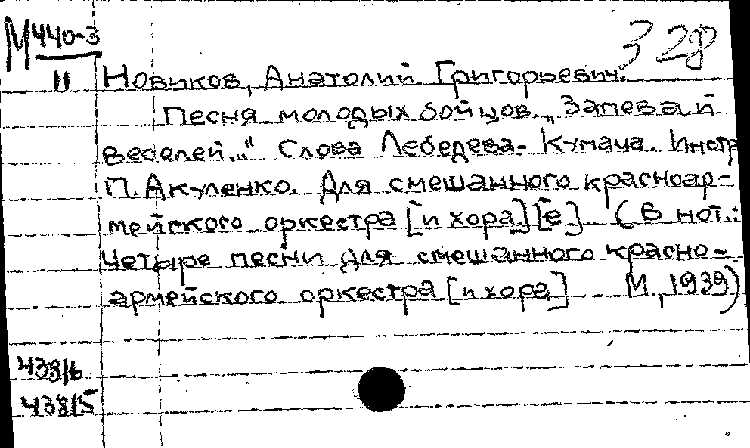 М 440-3
11
328
Новиков, Анатолий Григорьевич.
Песня молодых бойцов. „Запевай
веселей..." Слова Лебедева-Кумача. Инстр
П. Акуленко. Для смешанного красноар-
мейского оркестра [и хора] [e]. (В нот.:
Четыре песни для смешанного красно-
армейского оркестра [и хора] М., 1939)
438/6
438/5